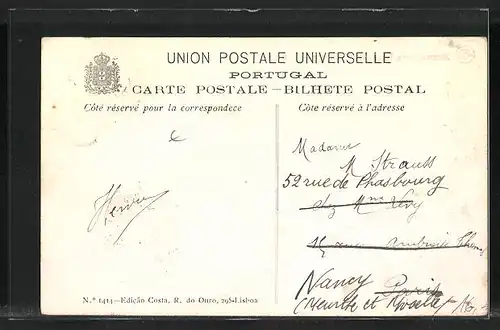 UNION POSTALE UNIVERSELLE
PORTUGAL
CARTE POSTALE—BILHETE POSTAL
Côté réservé pour la correspondece
Côte réservé à l'adresse
Madame
M Strauss
52 rue de Phasbourg
chez Mme Lévy
Nancy Paris
Meurthe et Moselle
N.º 1414—Edição Costa, R. do Ouro, 295-Lisboa